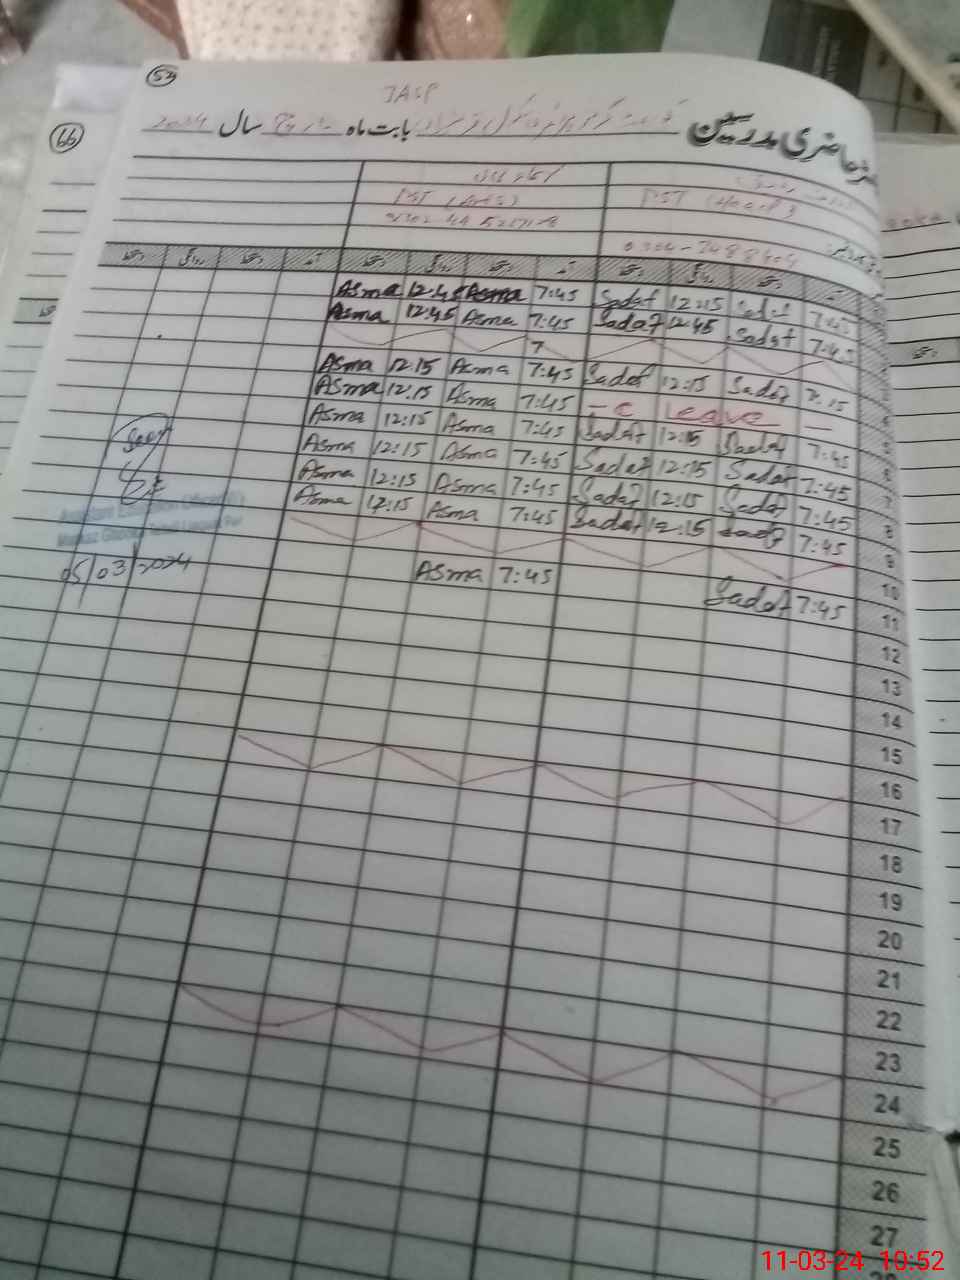 53
JASP
حاضری مدرسین بابت ماہ مارچ سال 2024
66
PST (Head)
PST (Arts)
0304-3488404
آمد دستخط روانگی دستخط آمد دستخط روانگی دستخط آمد دستخط روانگی دستخط
7:45 Sadaf 12:15 Sadaf 7:45 Asma 12:45 Asma
7:45 Sadaf 12:45 Sadaf 7:45 Asma 12:45 Asma
7
Sadaf 12:15 Sadaf 7:45 Asma 12:15 Asma
— C Leave — 7:45 Asma 12:15 Asma
7:45 Sadaf 12:15 Sadaf 7:45 Asma 12:15 Asma
7:45 Sadaf 12:15 Sadaf 7:45 Asma 12:15 Asma
7:45 Sadaf 12:15 Sadaf 7:45 Asma 12:15 Asma
7:45 Sadaf 12:15 Sadaf 7:45 Asma 12:15 Asma
Seen
Assistant Education Officer
Markaz
05/03/2024
5
6
7
8
9
10
11 7:45 Sadaf 7:45 Asma
12
13
14
15
16
17
18
19
20
21
22
23
24
25
26
27
11-03-24 10:52